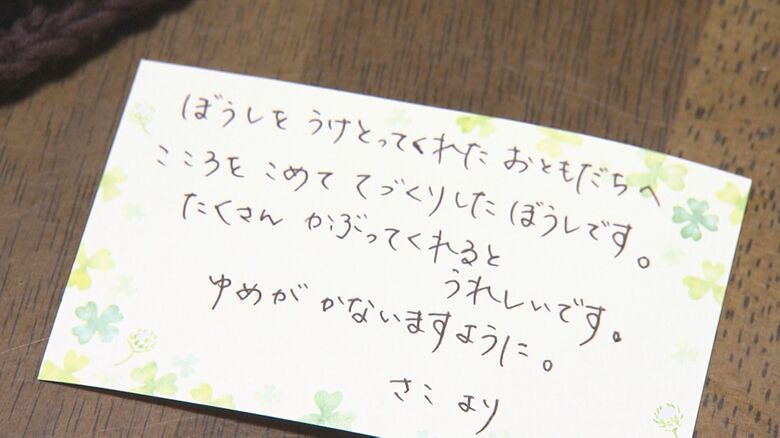 ぼうしを うけとってくれた おともだちへ
こころを こめて てづくりした ぼうしです。
たくさん かぶってくれると
うれしいです。
ゆめが かないますように。
さこ より